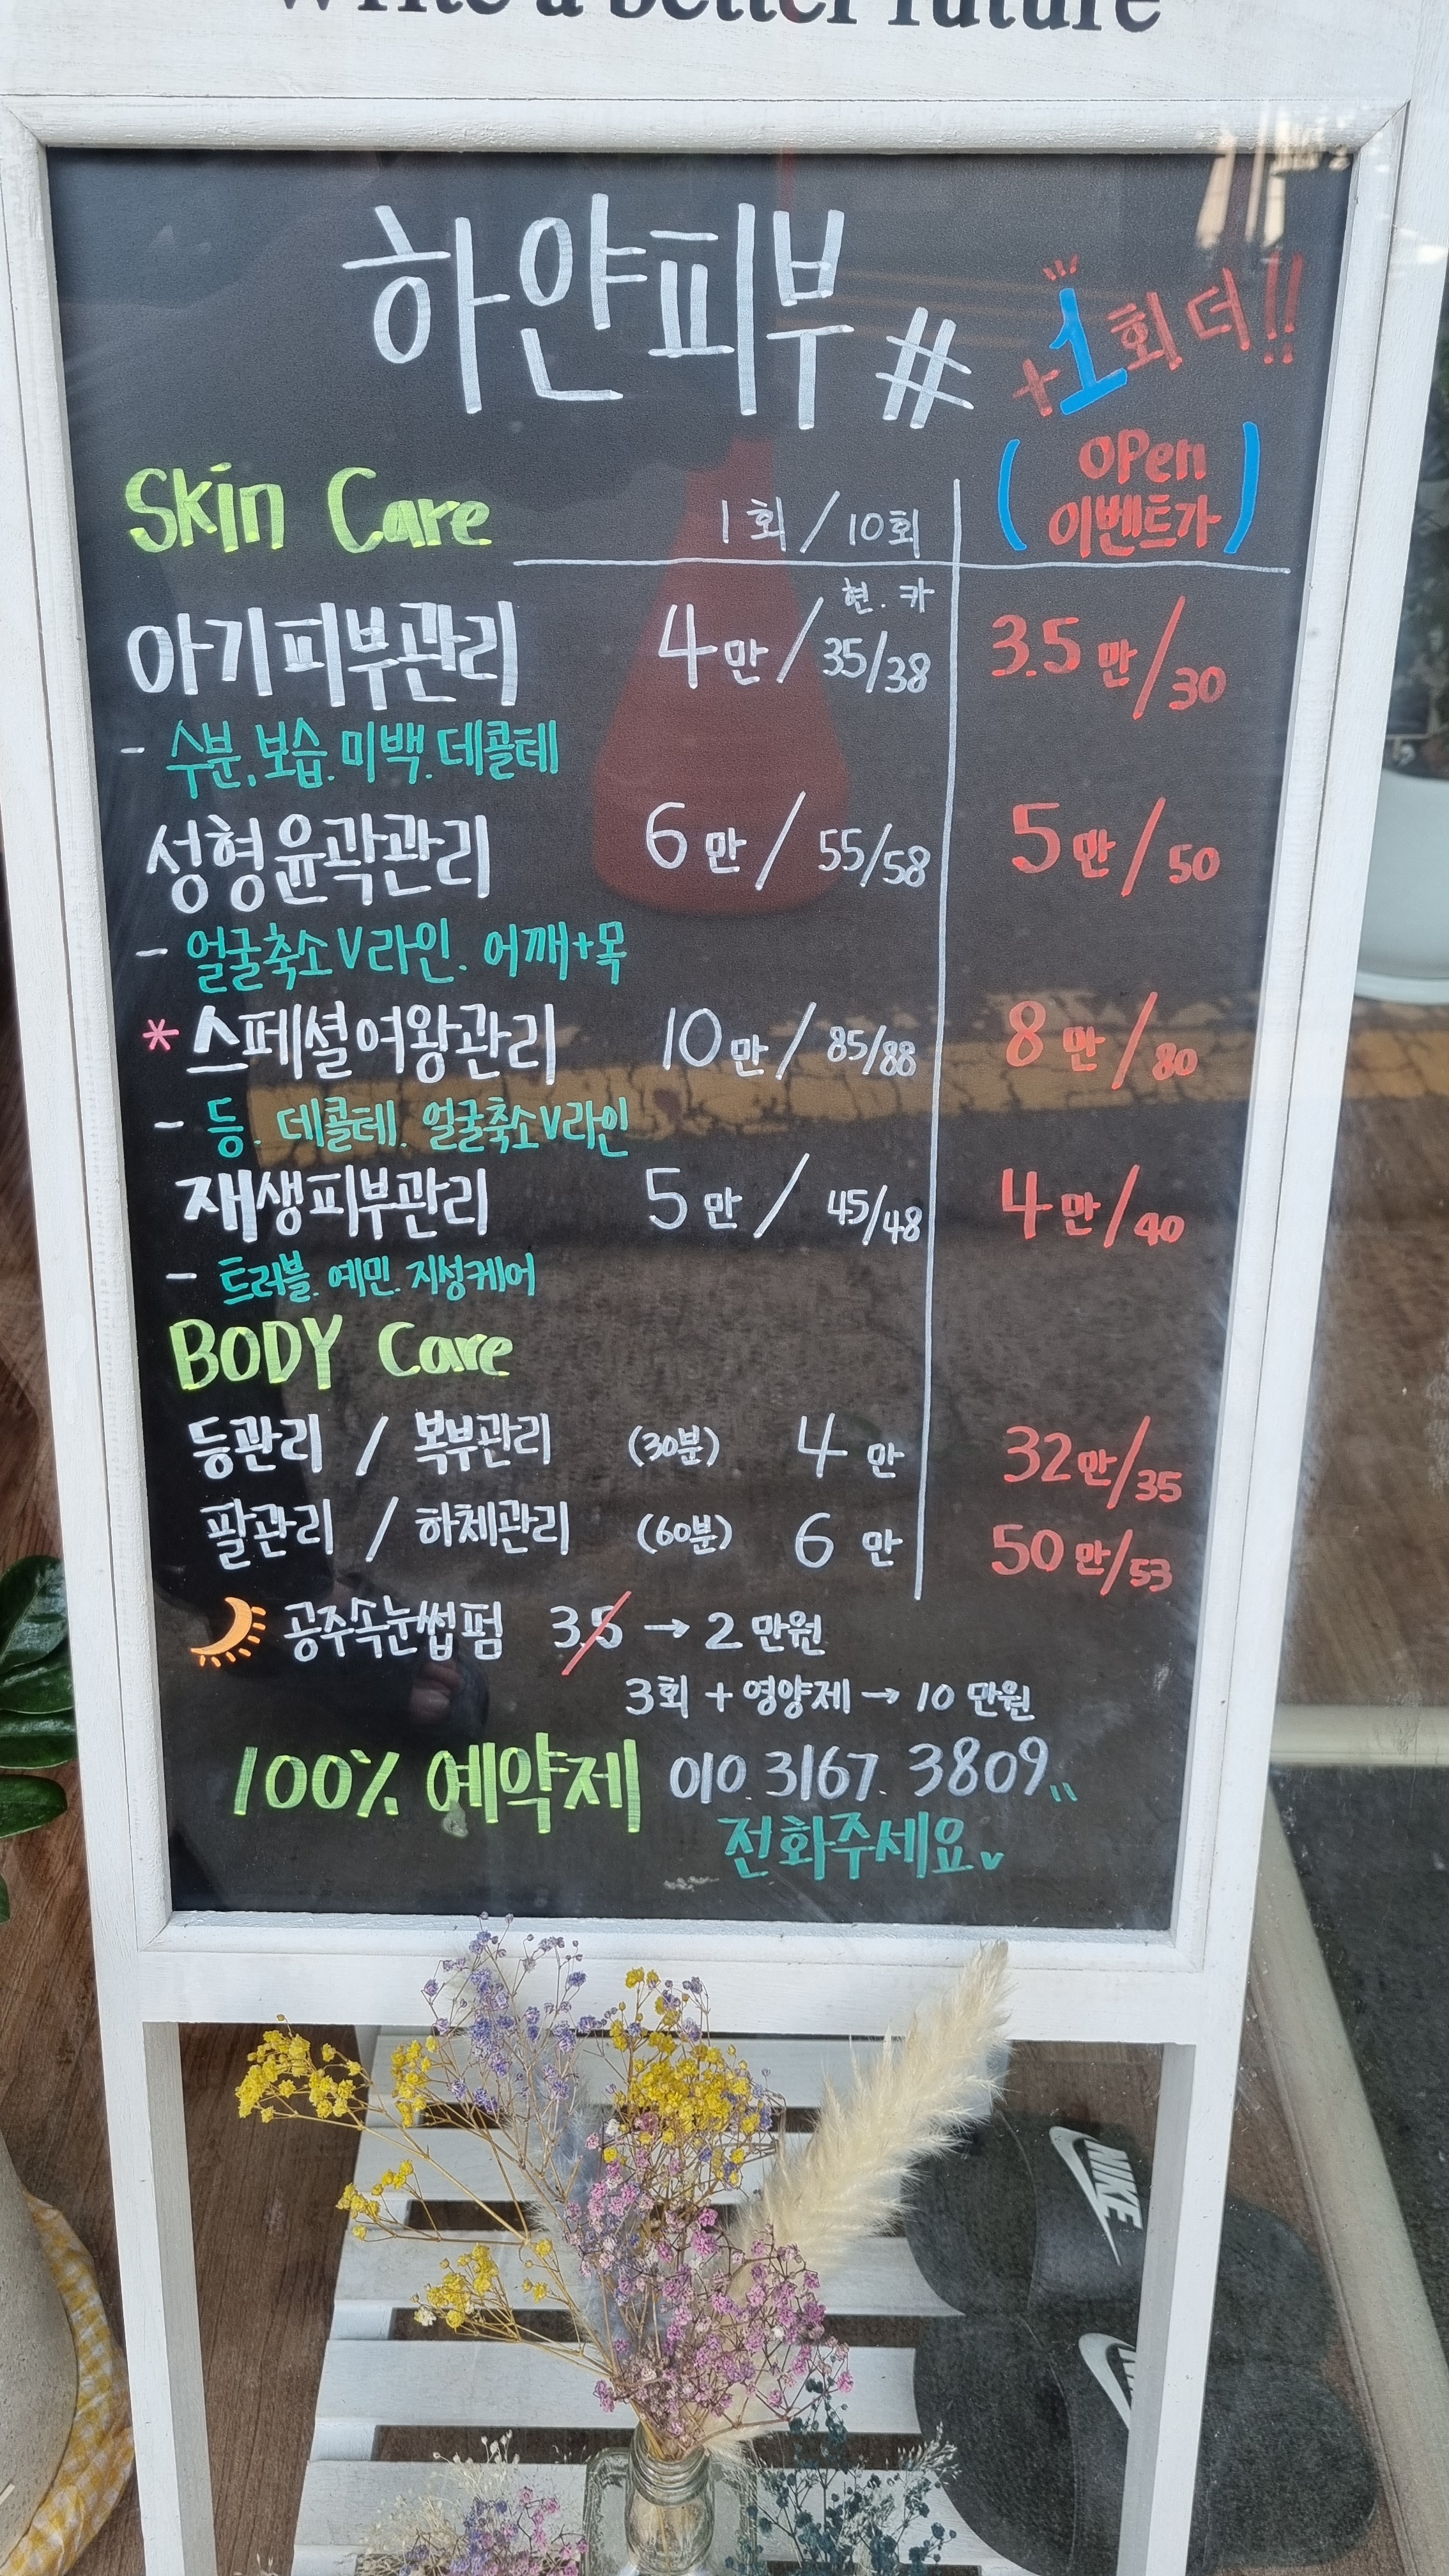 Write a better future
하얀피부#
+1회 더!!
Skin Care 1회/10회 (OPen 이벤트가)
현.카
아기피부관리 4만/35/38 3.5만/30
- 수분.보습.미백.데콜테
성형윤곽관리 6만/55/58 5만/50
- 얼굴축소V라인. 어깨+목
* 스페셜여왕관리 10만/85/88 8만/80
- 등. 데콜테. 얼굴축소V라인
재생피부관리 5만/45/48 4만/40
- 트러블. 예민. 지성케어
BODY Care
등관리 / 복부관리 (30분) 4만 32만/35
팔관리 / 하체관리 (60분) 6만 50만/53
공주속눈썹펌 3.5 → 2만원
3회 + 영양제 → 10만원
100% 예약제 010.3167.3809
전화주세요
NIKE